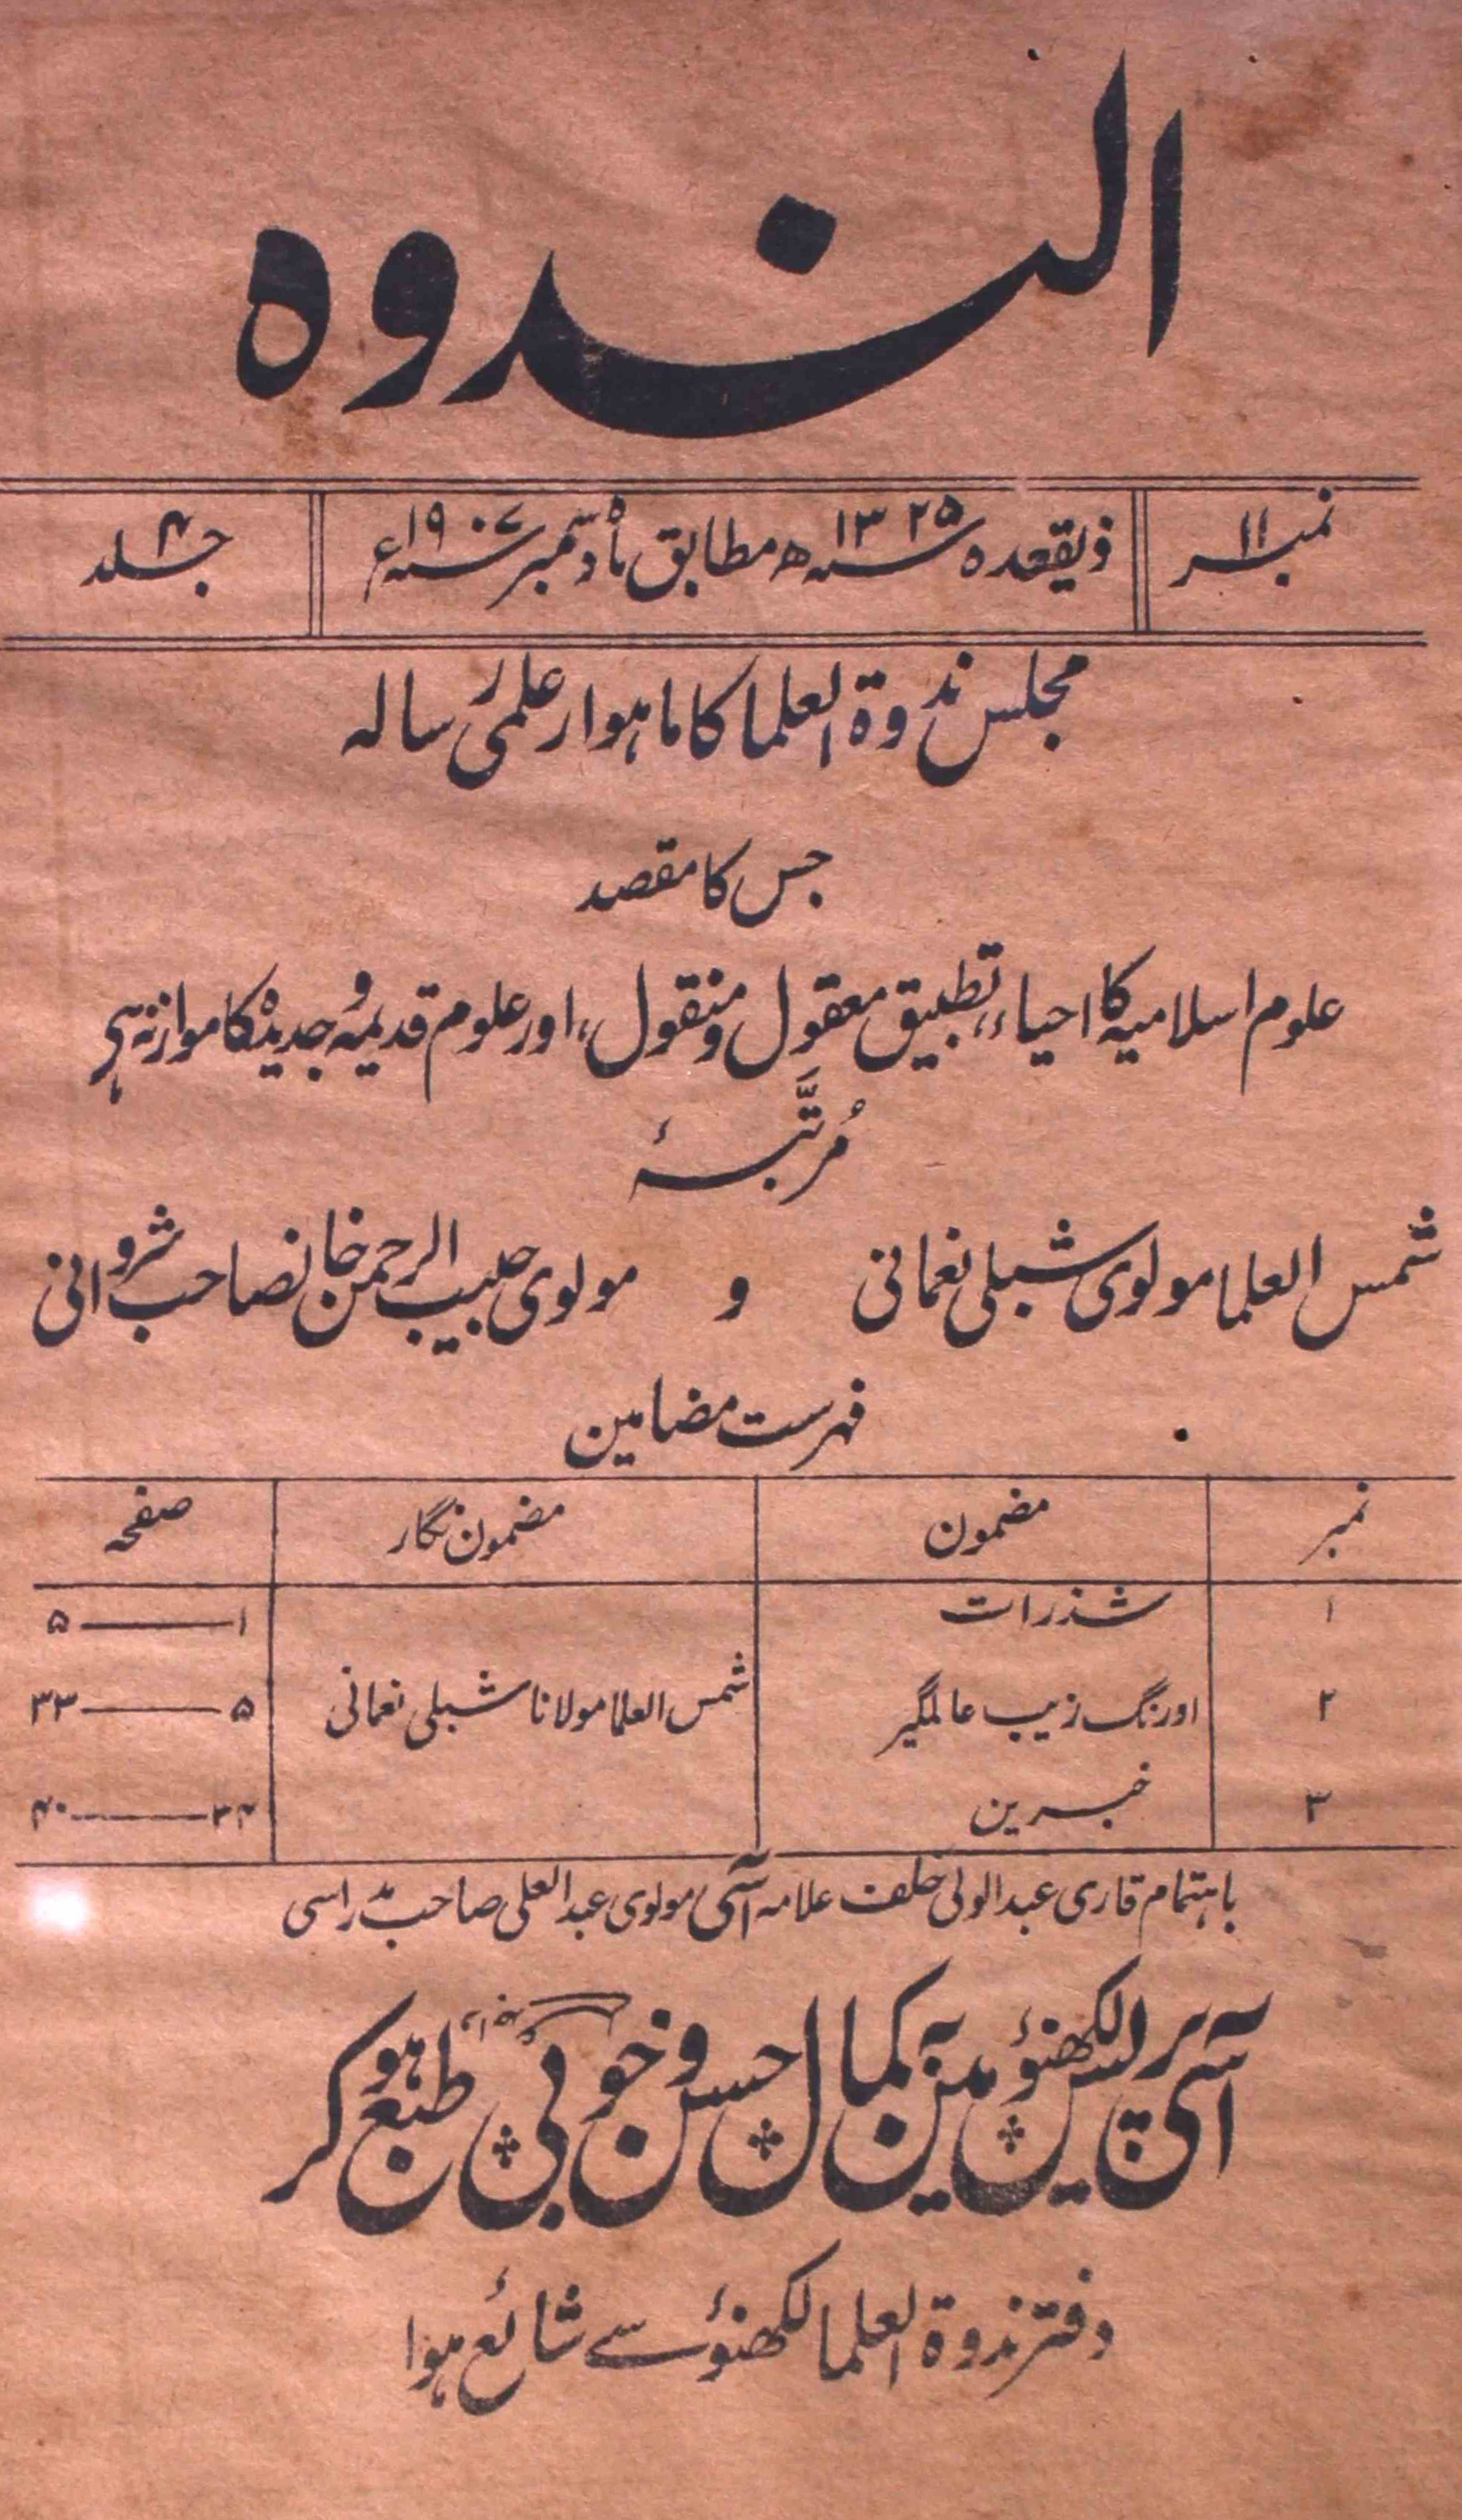 الندوہ
نمبر ۱۱ ذیقعدہ سنہ ۱۳۲۵ھ مطابق ماہ دسمبر سنہ ۱۹۰۷ء جلد ۴
مجلس ندوۃ العلما کا ماہوار علمی رسالہ
جس کا مقصد
علوم اسلامیہ کا احیاء، تطبیق معقول و منقول، اور علوم قدیمہ و جدیدہ کا موازنہ ہی
مُرتَّبۂ
شمس العلما مولوی شبلی نعمانی و مولوی حبیب الرحمن خانصاحب شروانی
فہرست مضامین
نمبر مضمون مضمون نگار صفحہ
۱ شذرات ۱ — ۵
۲ اورنگ زیب عالمگیر شمس العلما مولانا شبلی نعمانی ۵ — ۳۳
۳ خبرین ۳۴ — ۴۰
باہتمام قاری عبدالولی خلف علامہ آسی مولوی عبدالعلی صاحب مدراسی
آسی پریس لکھنؤ مین بکمال حسن و خوبی طبع ہو کر
دفتر ندوۃ العلما لکھنؤ سے شائع ہوا